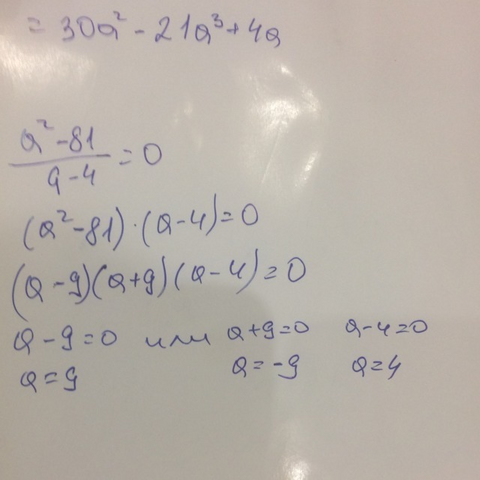 = 30a² - 21a³ + 4a
a² - 81
a - 4 = 0
(a² - 81) · (a - 4) = 0
(a - 9)(a + 9)(a - 4) = 0
a - 9 = 0 или a + 9 = 0 a - 4 = 0
a = 9 a = -9 a = 4